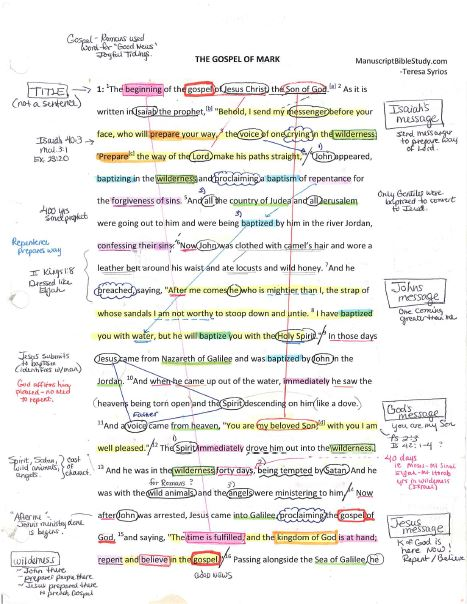 Gospel - Romans used
word for "Good News"
Joyful Tidings.
THE GOSPEL OF MARK
ManuscriptBibleStudy.com
-Teresa Syrios
TITLE
(not a sentence)
1: ¹The beginning of the gospel of Jesus Christ, the Son of God.[a] ² As it is
written in Isaiah the prophet,[b] "Behold, I send my messenger before your
face, who will prepare your way, ³ the voice of one crying in the wilderness:
'Prepare[c] the way of the Lord, make his paths straight,'" ⁴ John appeared,
baptizing in the wilderness and proclaiming a baptism of repentance for
the forgiveness of sins. ⁵ And all the country of Judea and all Jerusalem
were going out to him and were being baptized by him in the river Jordan,
confessing their sins. ⁶ Now John was clothed with camel's hair and wore a
leather belt around his waist and ate locusts and wild honey. ⁷ And he
preached, saying, "After me comes he who is mightier than I, the strap of
whose sandals I am not worthy to stoop down and untie. ⁸ I have baptized
you with water, but he will baptize you with the Holy Spirit." ⁹ In those days
Jesus came from Nazareth of Galilee and was baptized by John in the
Jordan. ¹⁰ And when he came up out of the water, immediately he saw the
heavens being torn open and the Spirit descending on him like a dove.
Father
¹¹ And a voice came from heaven, "You are my beloved Son; with you I am
well pleased." ¹² The Spirit immediately drove him out into the wilderness.
¹³ And he was in the wilderness forty days, being tempted by Satan. And he
for Romans?
was with the wild animals, and the angels were ministering to him. ¹⁴ Now
after John was arrested, Jesus came into Galilee, proclaiming the gospel of
God, ¹⁵ and saying, "The time is fulfilled, and the kingdom of God is at hand;
repent and believe in the gospel." ¹⁶ Passing alongside the Sea of Galilee, he
GOOD NEWS
Isaiah 40:3
Mal 3:1
Ex 23:20
400 yrs
since prophet
Repentence
prepares way
II Kings 1:8
Dressed like
Elijah
Jesus submits
to baptism
(identifies w/man)
God affirms him
pleased - no need
to repent.
Spirit, Satan,
wild animals,
angels.
cast of
charact.
"After" me
John's ministry done
is begins.
Wilderness
- John there
- prepares people there
- Jesus prepared there
to preach Gospel
Isaiah's
message
send messenger
to prepare way
of Lord.
Only Gentiles were
baptized to convert
to Jewish.
John's
message
One coming
greater than me
God's
message
you are my Son
Ps 2:7
Is 42:1-4 ?
40 days
ie Moses - Mt Sinai
Elijah - Mt Horeb
yrs in wilderness
(Israel)
Jesus
message
K of God is
here now!
Repent / Believe